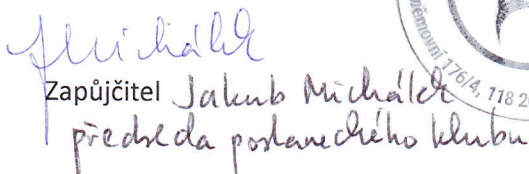 Michálek
Zapůjčitel Jakub Michálek
předseda poslaneckého klubu
němovní 176/4, 118 2